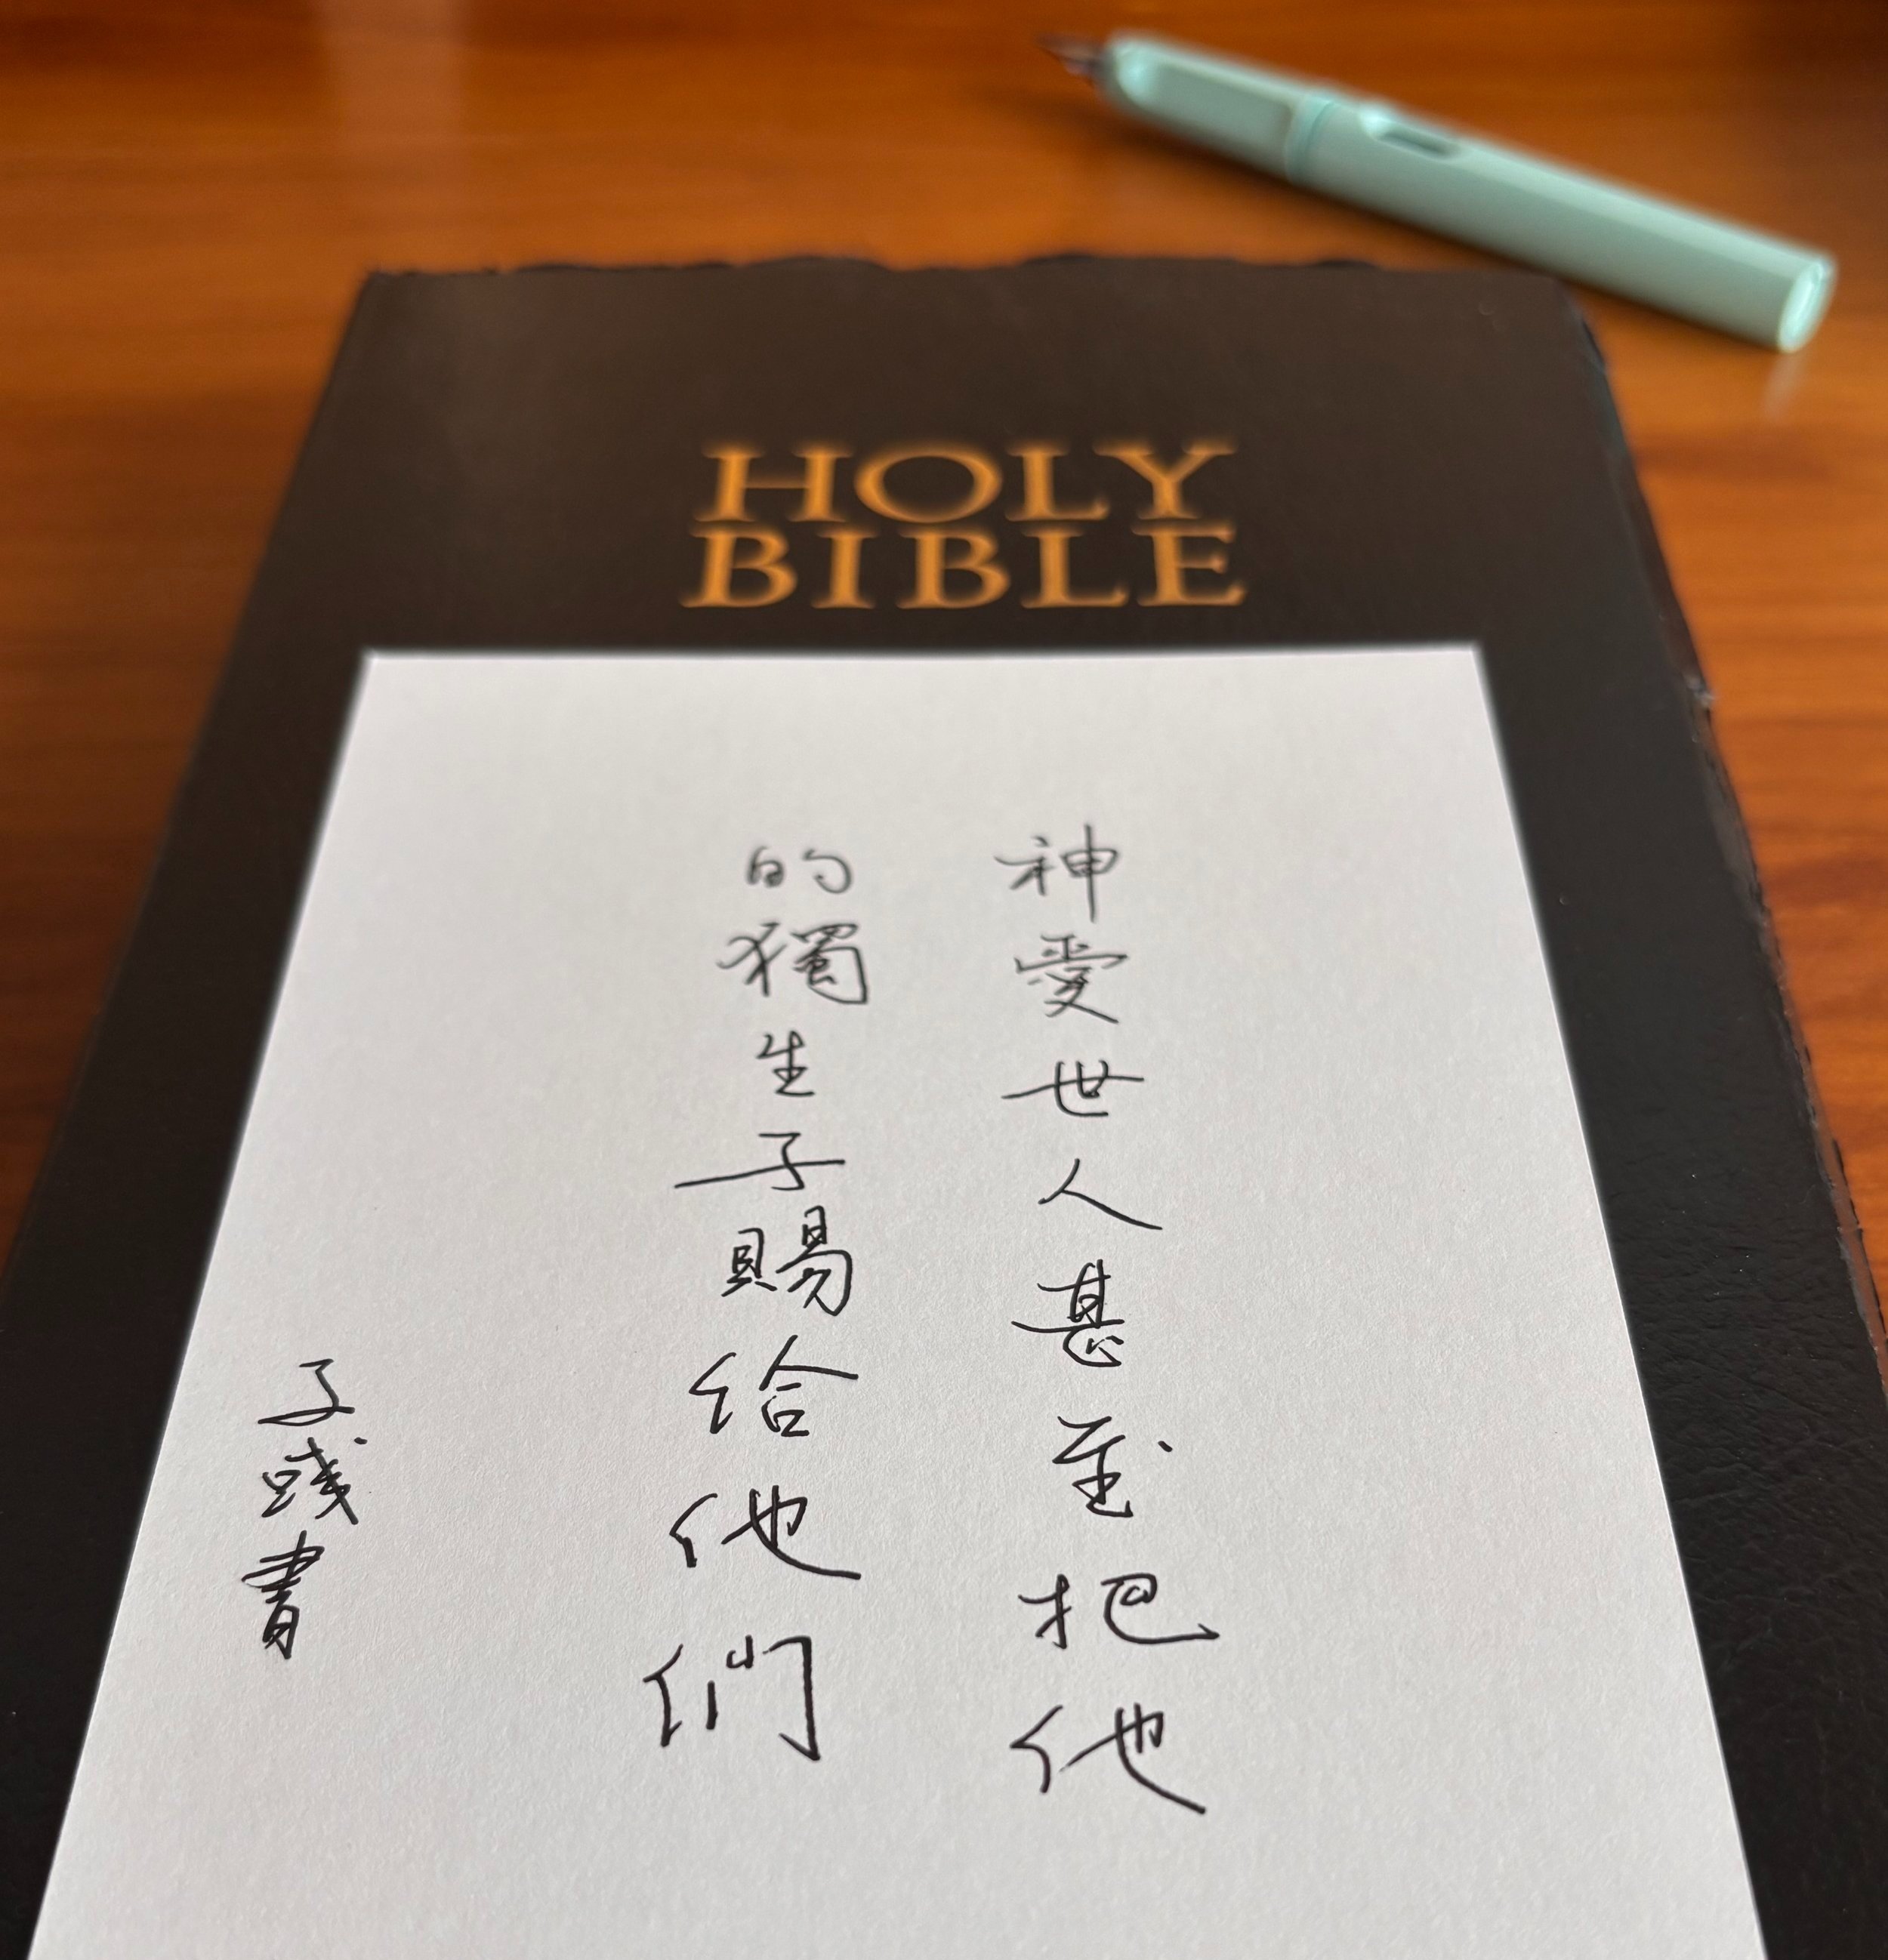 HOLY
BIBLE
神愛世人甚至把他
的獨生子賜給他們
子践書